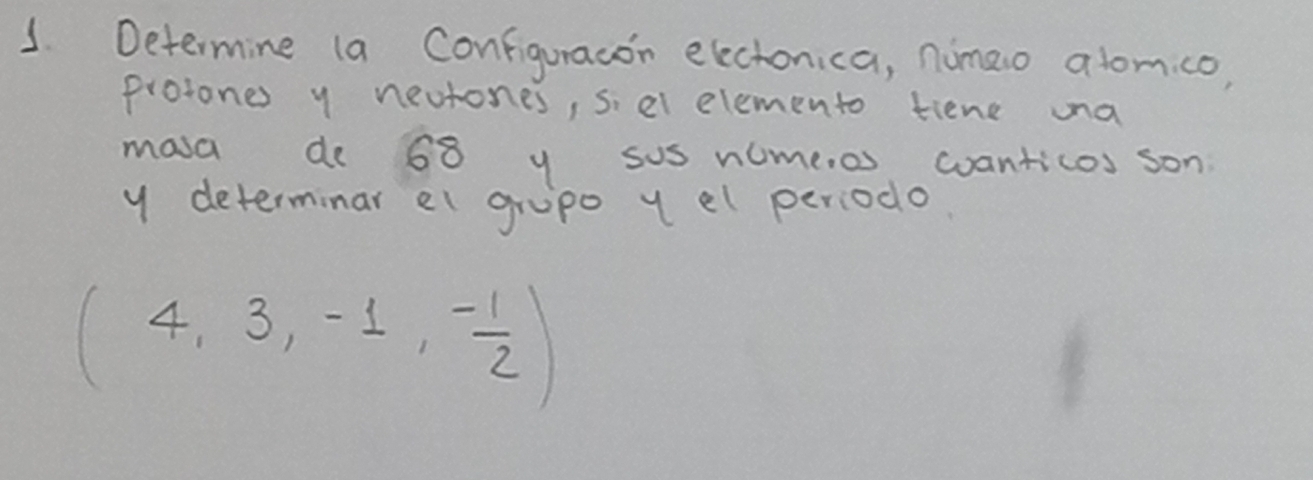 1. Determine la Configuracón electonica, número atomico,
protones y neutones, si el elemento tiene una
masa de 68 y sus números cuanticos son:
y determinar el grupo y el periodo.
( 4, 3, -1, -1/2 )